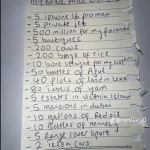 MY BRIDE PRICE LIST
- 5 iphone 16 pro max
- 5 private jet
- 500 million for my parents
- 5 boutiques
- 200 cows
- 200 bags of rice
- 10 boxes for my
- 50 bottles of
- 40 plots of land in
- 80 tubers of yam
- 5 estates in victoria Island
- 5 mansions in dubai
- 10 gallons of Red oil
- 10 bottles of Hennessy
- 5 Range rover sport
- 2 cars